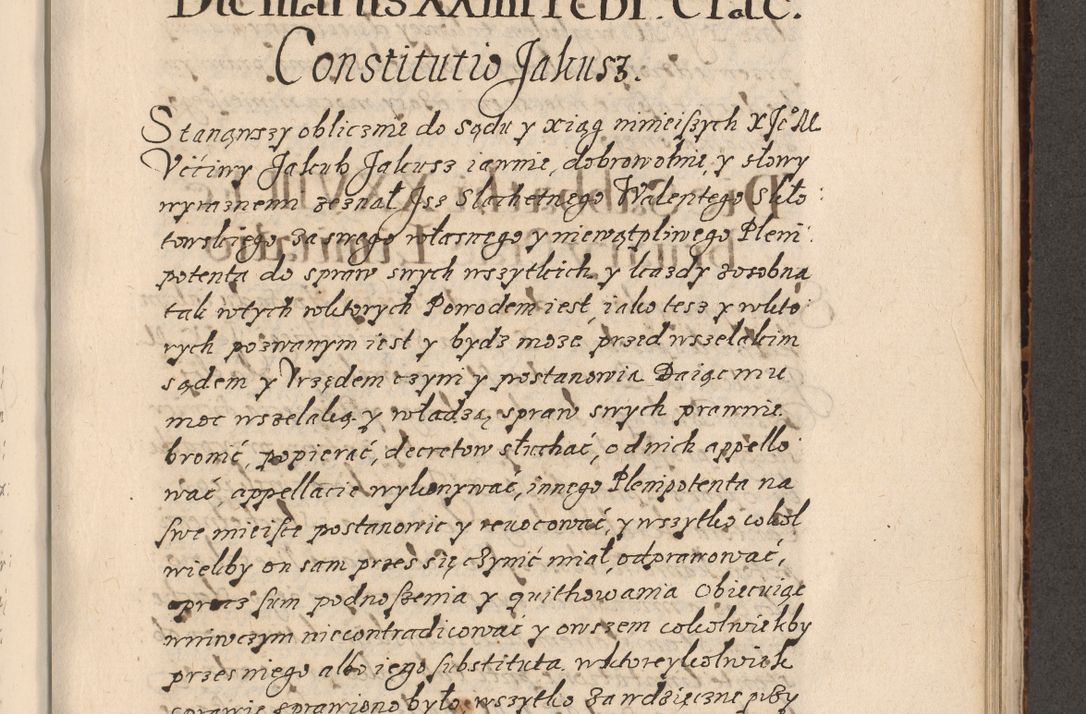 Die Martis XXIIII Febr Crac.
Constitutio Jakusz.
Stanąwszy oblicznie do sądu y xiąg ninieiszych X Jc° M
Vććiwy Jakub Jakusz iawnie, dobrowolnie, y słowy
wyraznemi zeznał Jsz Slachetnego Walentego Skło
towskiego za swego własnego y niewątpliwego Pleni
potenta do spraw swych wszytkich y kazdy zosobna
tak wtych wktorych Powodem iest, iako tesz y wkto
rych pozwanym iest y bydz moze przed wszelakim
sądem y Vrzędem czyni y postanowia Daiąc mu
moc wszelaką y władzą, spraw swych prawnie
bronić, popierać, decretow słuchać, od nich appello
wać, appellacie wykonywać, innego Plenipotenta na
swe mieisce postanowic y reuocować, y wszytko cokol
wiekby on sam przes się czynić miał, odprawować,
oprocz sum podnoszenia y quithowania Obiecuiąc
wniwczym niecontradicować y owszem cokolwiekby
przes niego albo iego substituta wktoreykolwiek
sprawie sprawiono było, wszytko za wdzięczne przy